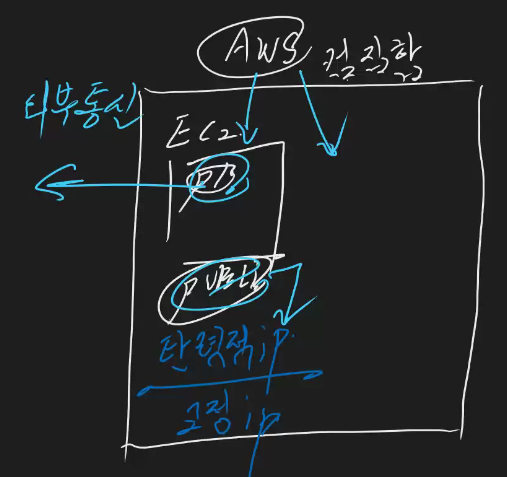 AWS
컴직함
외부통신
EC2
PUBLIC
탄력적ip
고정ip